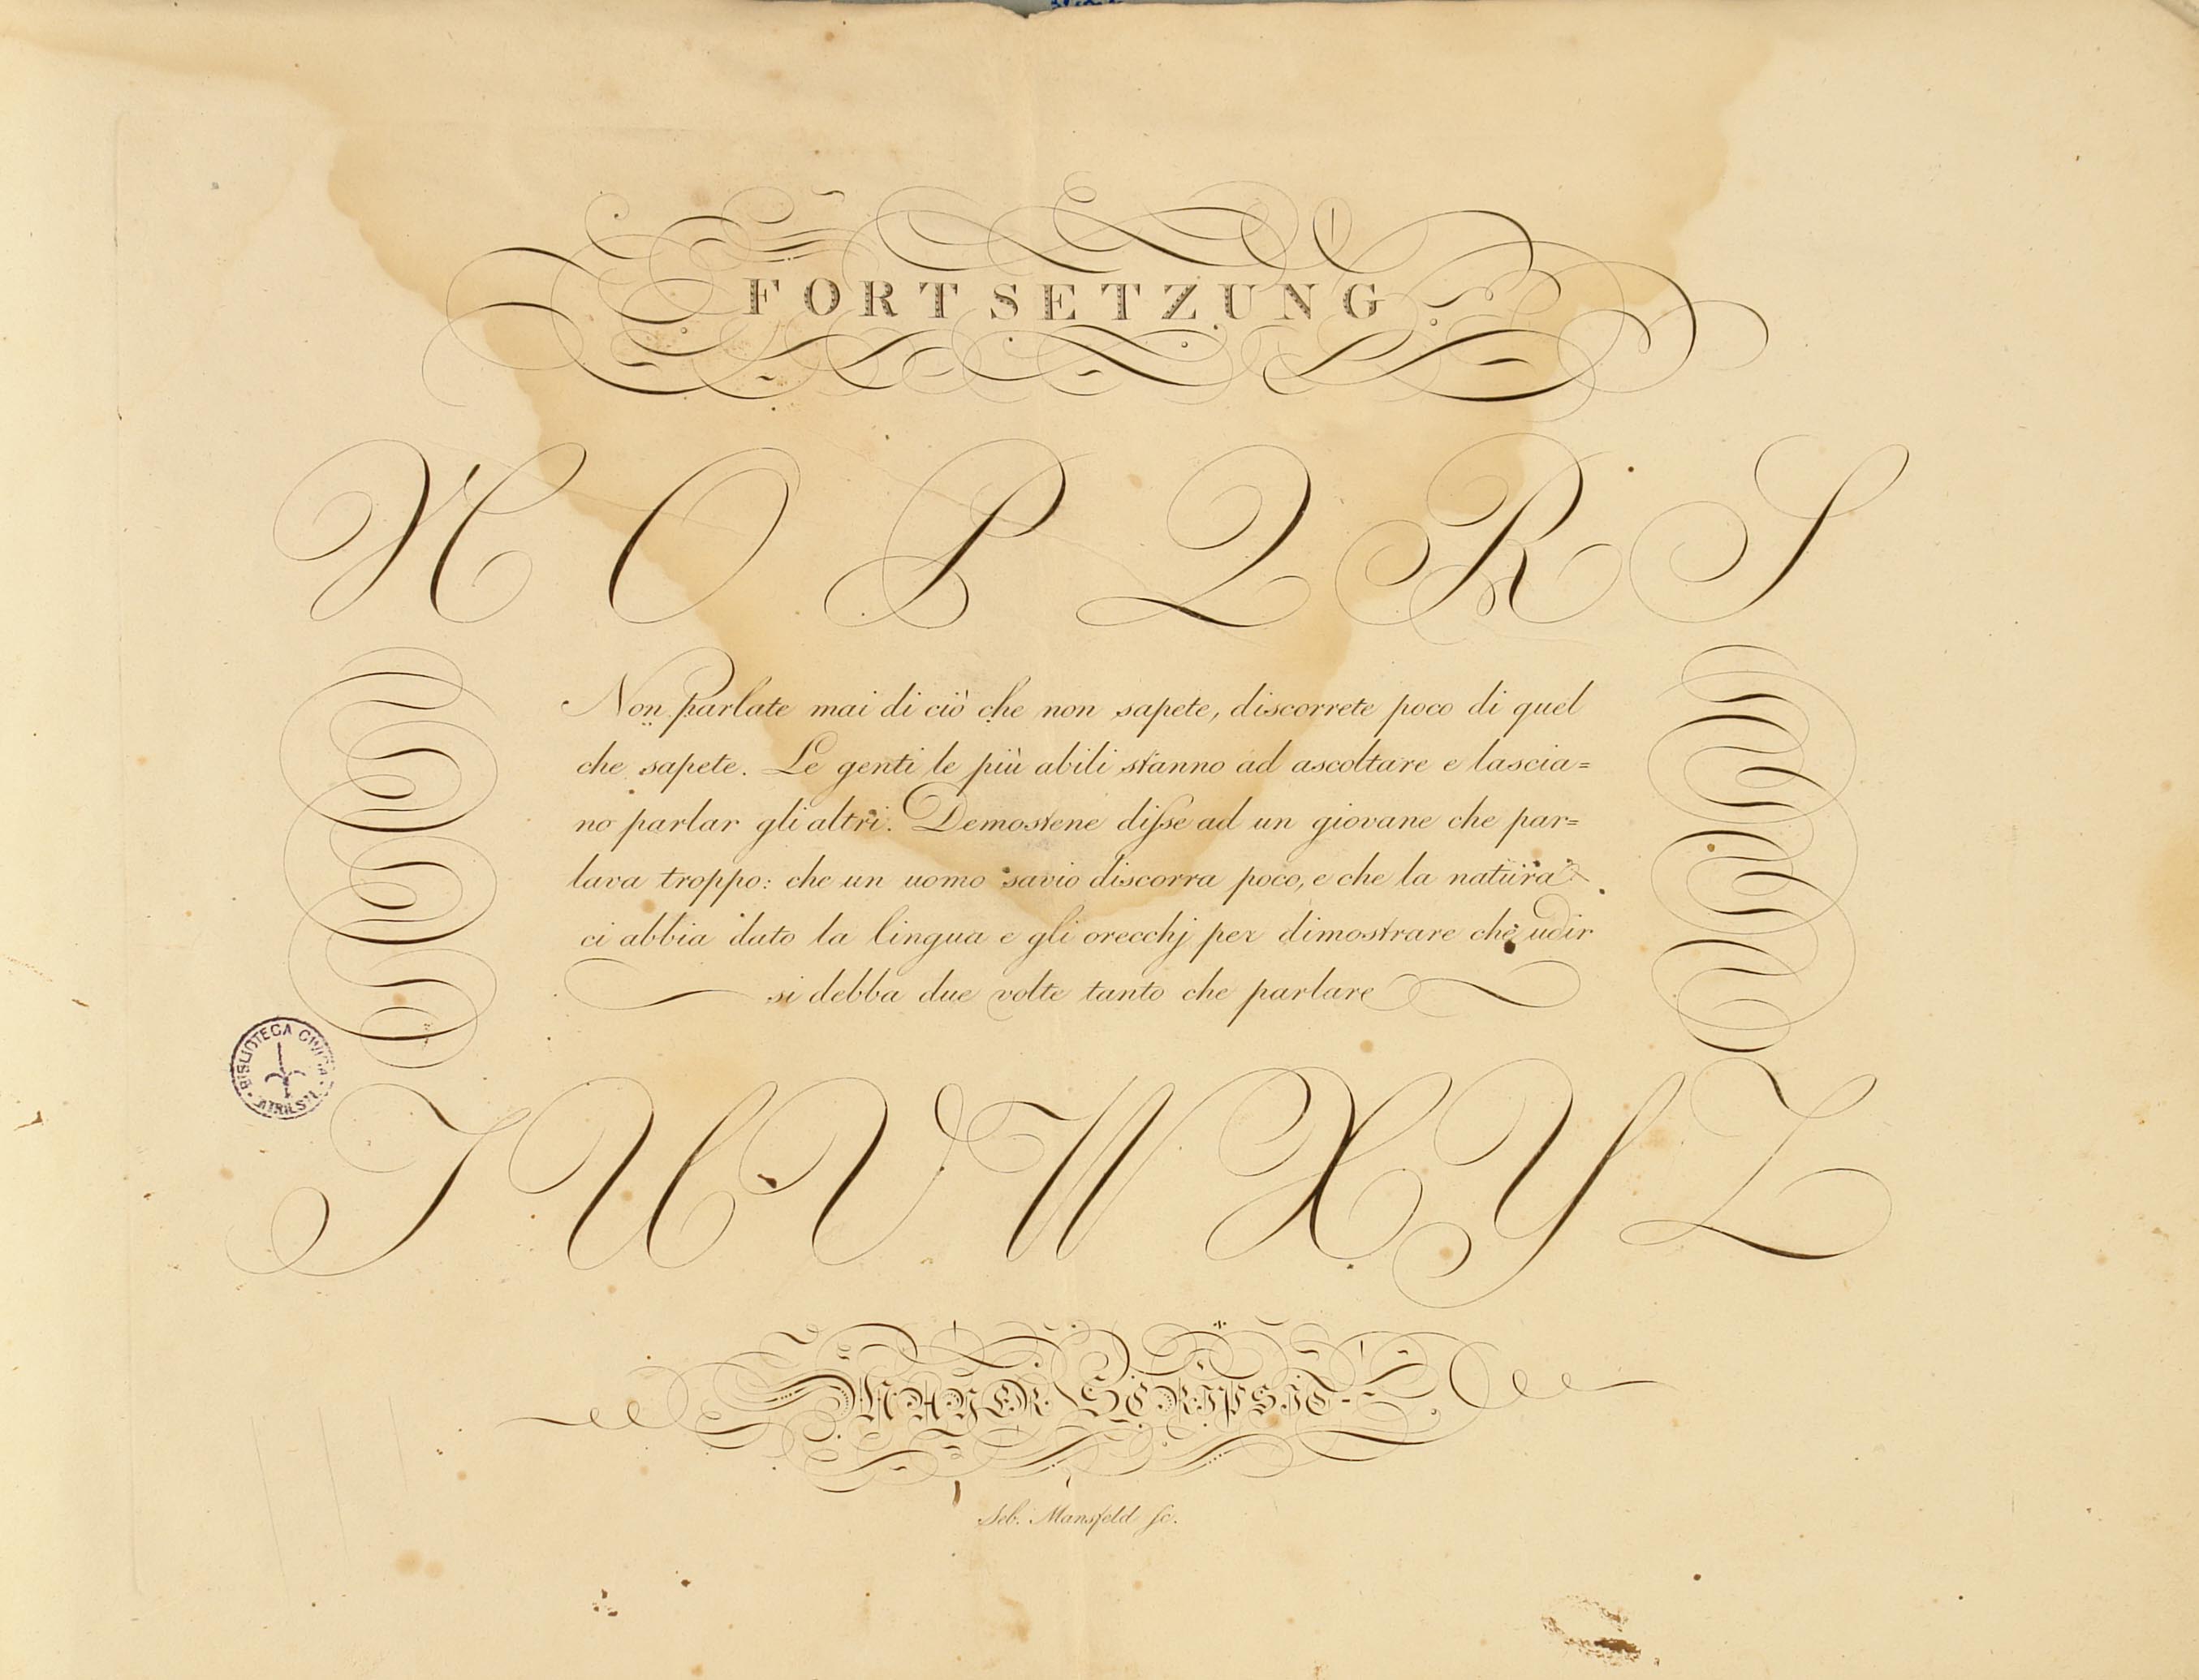 FORTSETZUNG
N O P Q R S
Non parlate mai di ciò che non sapete, discorrete poco di quel
che sapete. Le genti le più abili stanno ad ascoltare e lascia=
no parlar gli altri. Demostene disse ad un giovane che par=
lava troppo: che un uomo savio discorra poco, e che la natura
ci abbia dato la lingua e gli orecchj per dimostrare che udir
si debba due volte tanto che parlare
BIBLIOTECA CIVICA
TRIESTE
T U V W X Y Z
MAYER SCRIPSIT
Seb. Mansfeld sc.